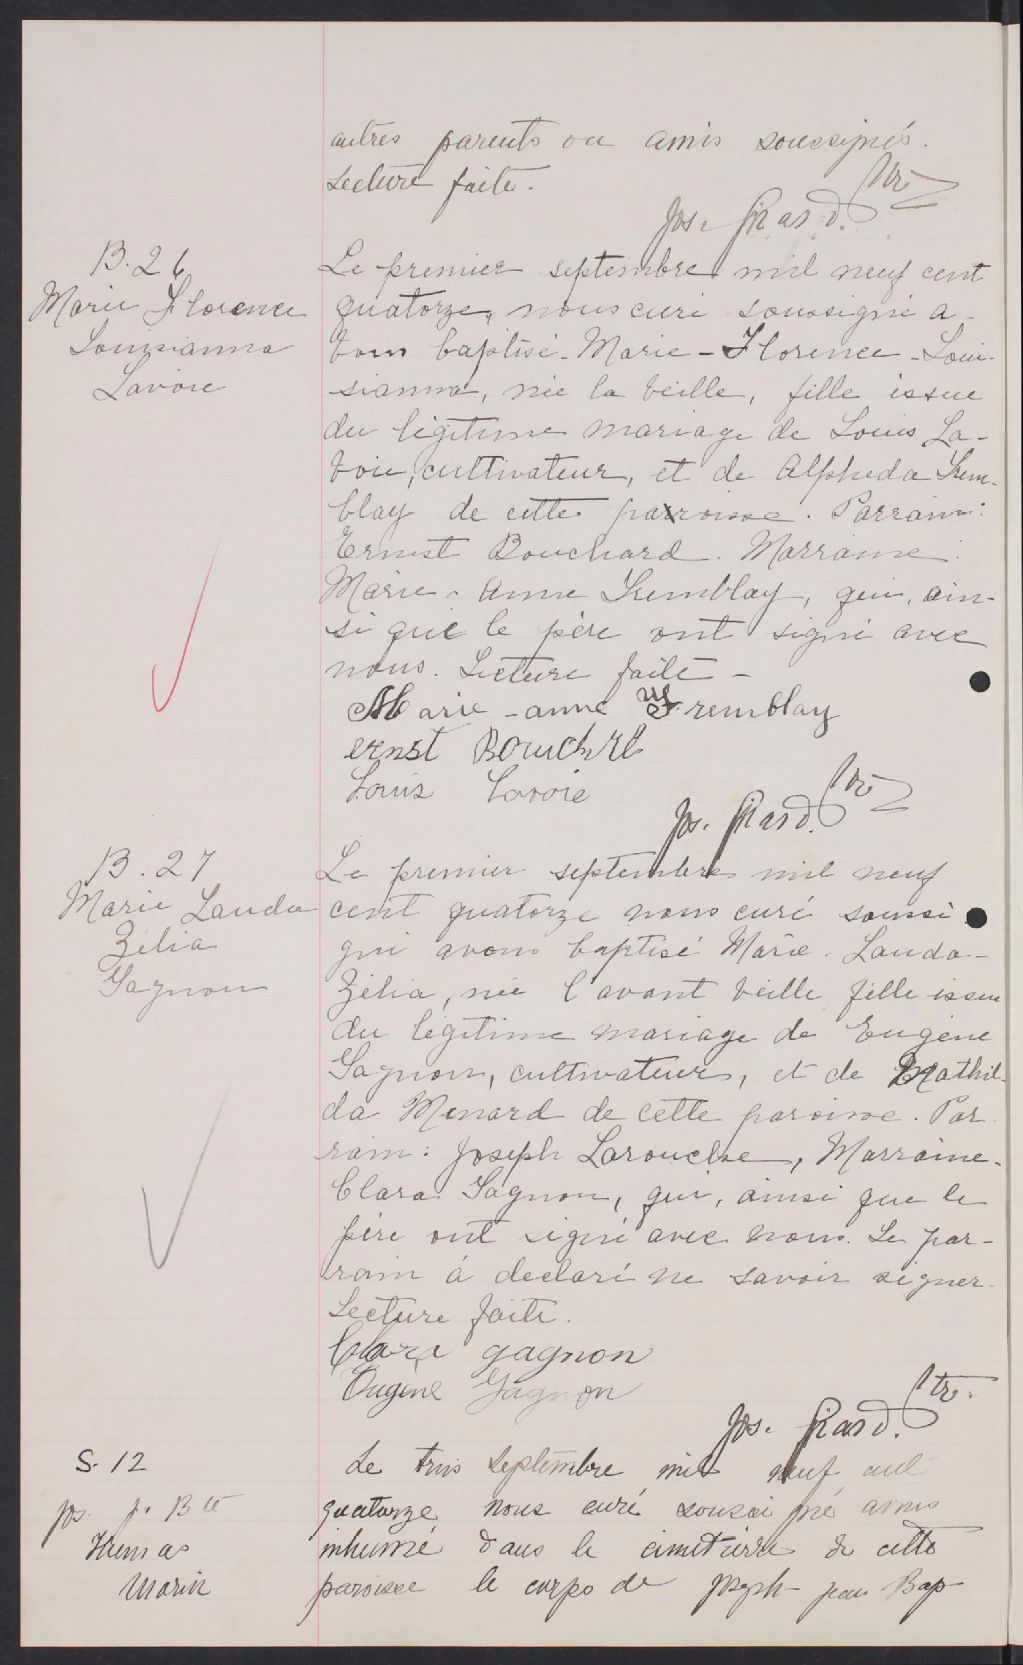 autres parents ou amis soussignés.
Lecture faite.
Jos. Girard. Ptre
B. 26
Marie Florence
Louisianna
Lavoie
Le premier septembre mil neuf cent
quatorze, nous curé soussigné a-
vons baptisé Marie-Florence-Loui-
sianna, née la veille, fille issue
du légitime mariage de Louis La-
voie, cultivateur, et de Alpheda Trem-
blay de cette paroisse. Parrain:
Ernest Bouchard. Marraine:
Marie-Anne Tremblay, qui, ain-
si que le père ont signé avec
nous. Lecture faite -
Marie-anne Tremblay
ernst Bouchrd
Louis Lavoie
Jos. Girard. Ptre
B. 27
Marie Lauda
Zélia
Gagnon
Le premier septembre mil neuf
cent quatorze nous curé soussi
gné avons baptisé Marie-Lauda-
Zélia, née l'avant veille, fille issue
du légitime mariage de Eugène
Gagnon, cultivateur, et de Mathil-
da Menard de cette paroisse. Par-
rain: Joseph Larouche, Marraine-
Clara Gagnon, qui, ainsi que le
père ont signé avec nous. Le par-
rain à declaré ne savoir signer.
Lecture faite.
Clara gagnon
Eugène Gagnon
Jos. Girard. Ptre.
S. 12
Jos. J. Bte
Thomas
Morin
Le trois Septembre mil neuf cent
quatorze nous curé soussi gné avons
inhumé dans le cimetière de cette
paroisse le corps de Joseph Jean Bap